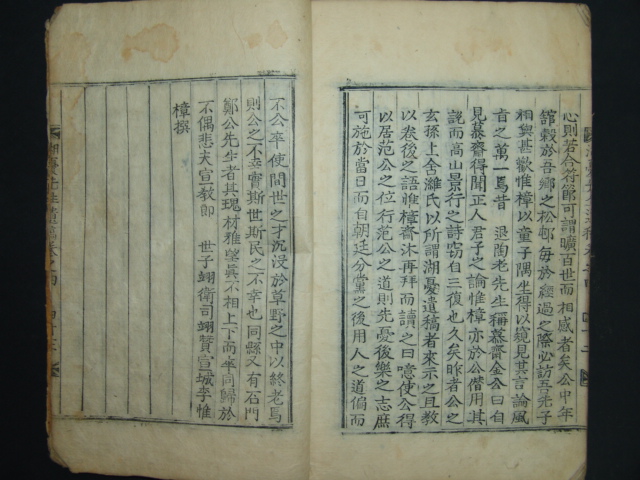 心則若合符節可謂曠百世而相感者矣公中年
館穀於吾鄉之松邨每於經過之際必訪吾先子
相與甚歡惟樟以童子隅坐得以窺見其言論風
旨之萬一焉昔 退陶老先生稱慕齋金公曰自
見慕齋得聞正人君子之論惟樟亦於公僣用其
說而高山景行之詩窃自三復也久矣昨者公之
玄孫上舍濰氏以所謂湖憂遺稿者來示之且敎
以卷後之語惟樟齋沐再拜而讀之曰噫使公得
以居范公之位行范公之道則先憂後樂之志庶
可施於當日而自朝廷分黨之後用人之道偏而
不公卒使間世之才沉沒於草野之中以終老焉
則公之不幸實斯世斯民之不幸也同縣又有石門
鄭公先生者其瑰材雅望眞不相上下而卒同歸於
不偶悲夫宣敎郎 世子翊衛司翊贊宣城李惟
樟撰